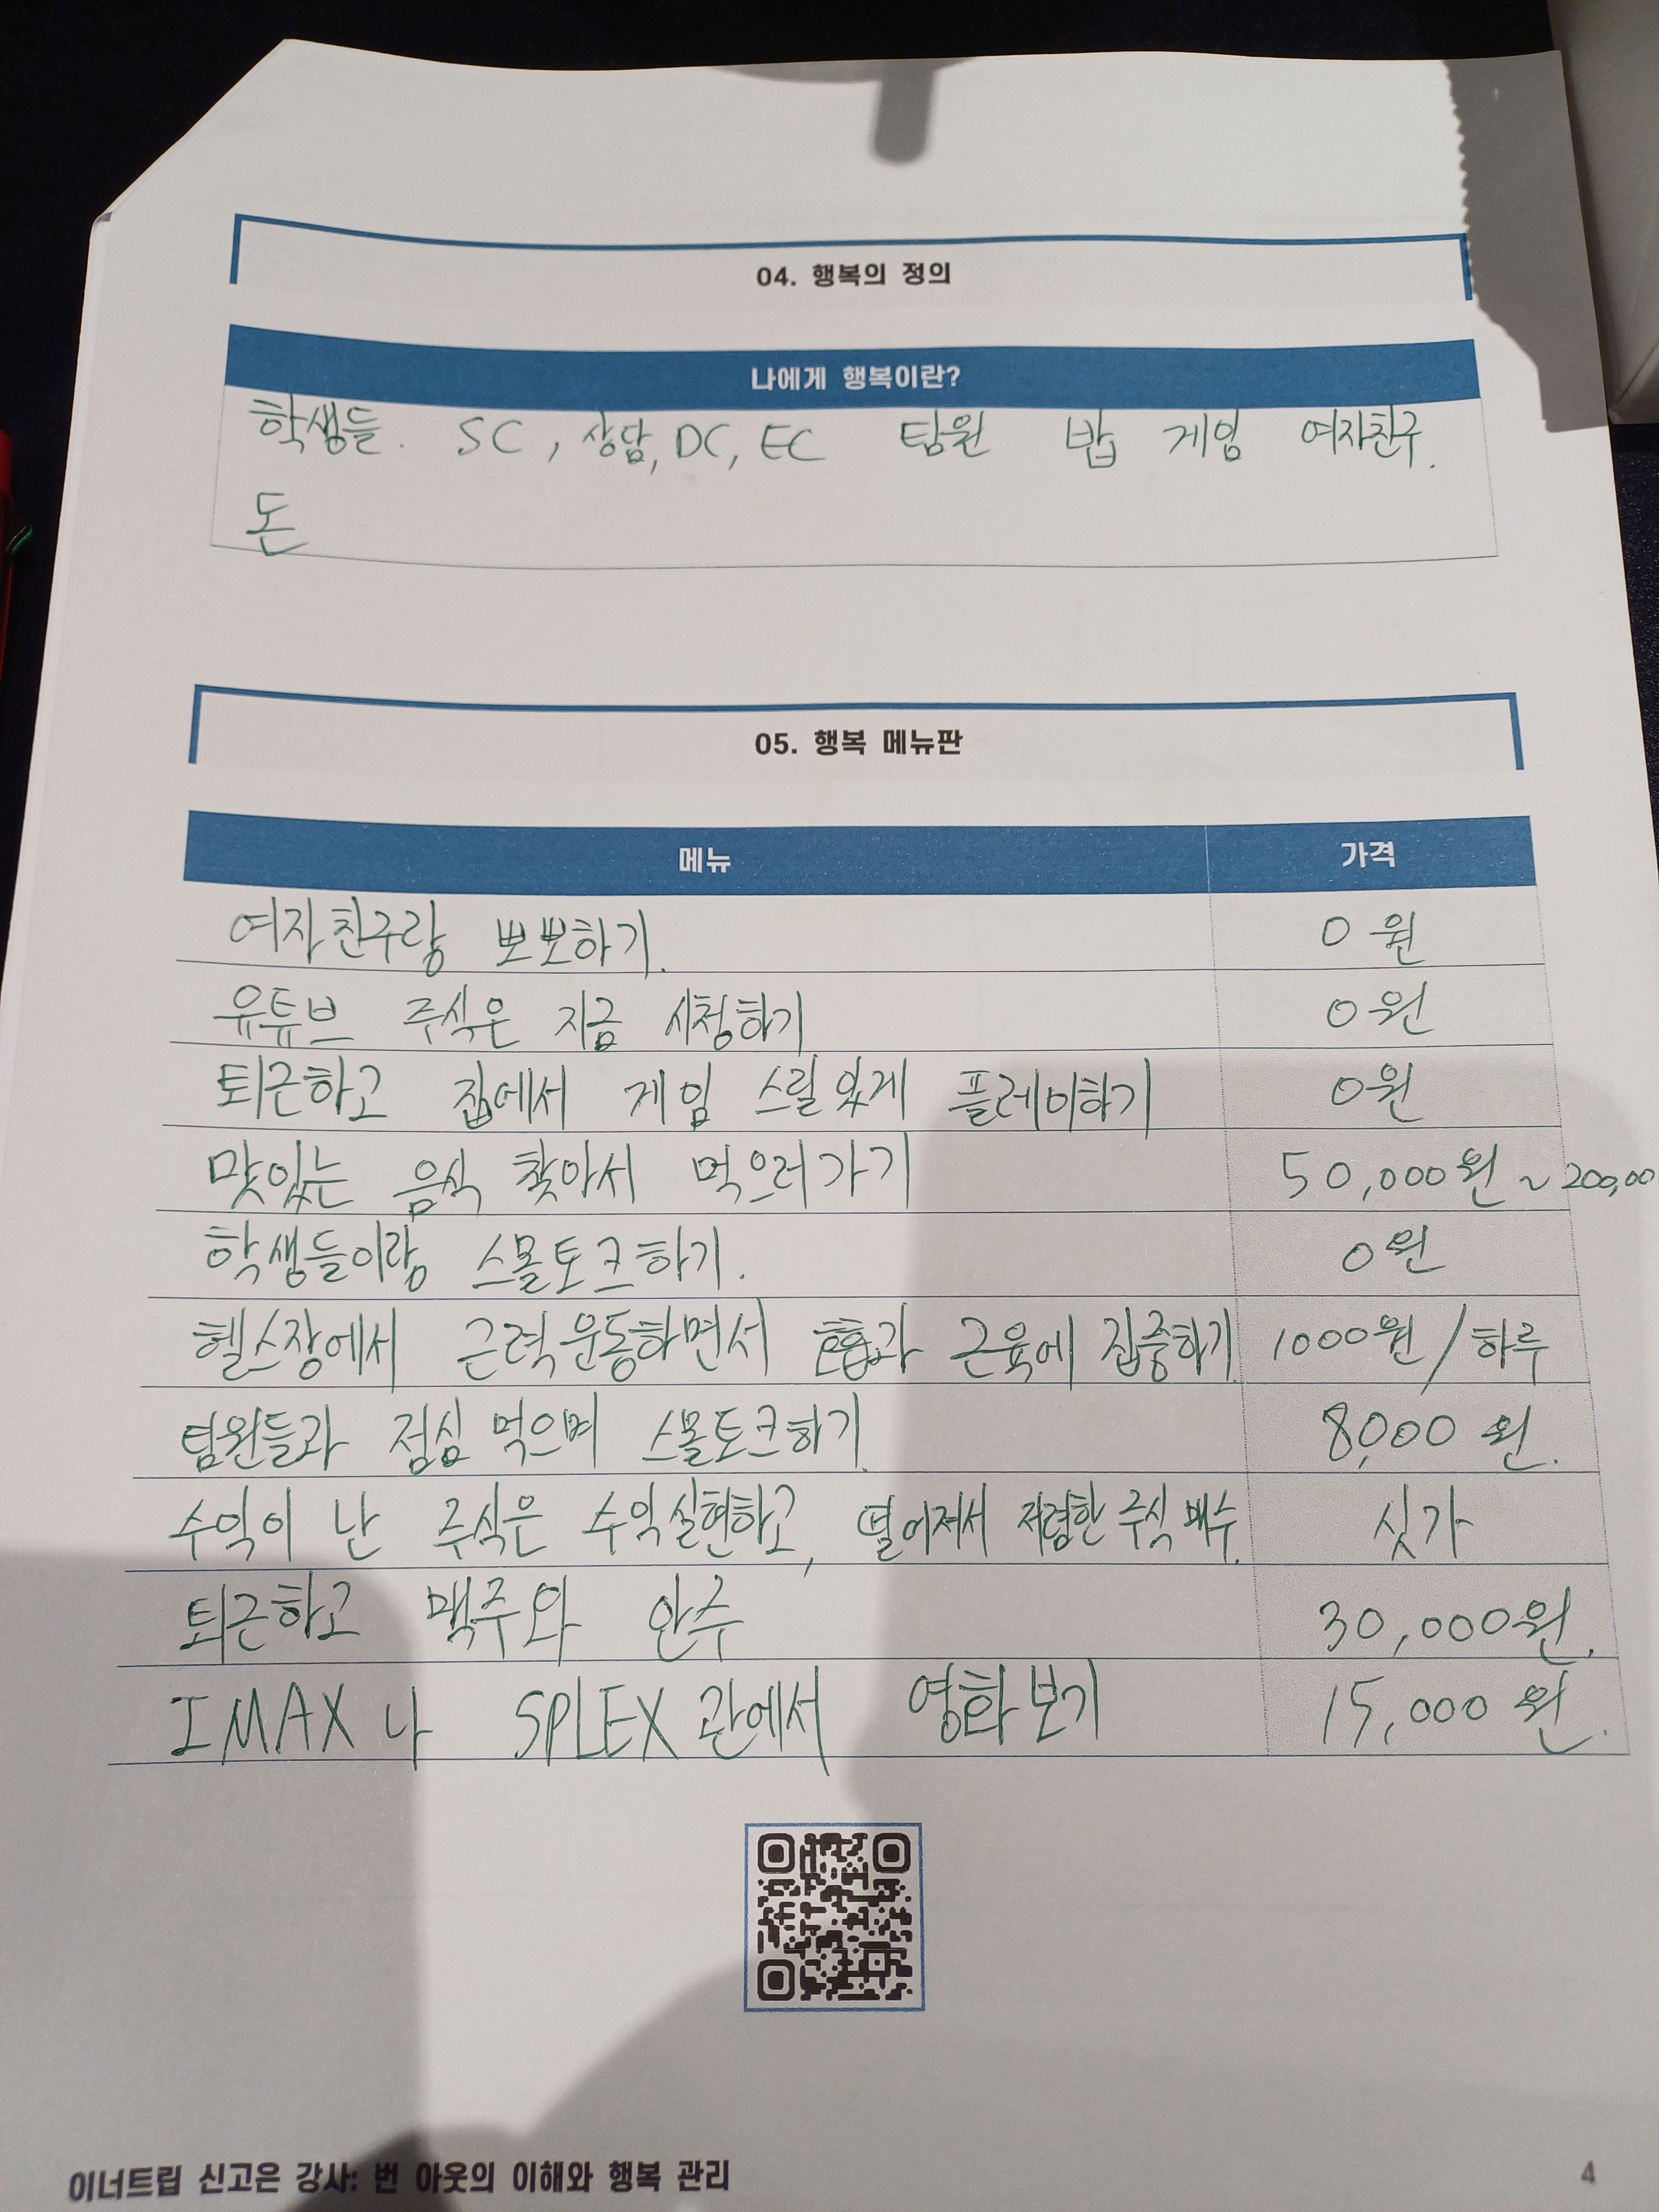 04. 행복의 정의
나에게 행복이란?
학생들. SC, 상담, DC, EC 팀원 밥 게임 여자친구.
돈
05. 행복 메뉴판
메뉴 가격
여자친구랑 뽀뽀하기. 0원
유튜브 주식은 지금 시청하기 0원
퇴근하고 집에서 게임 스릴있게 플레이하기 0원
맛있는 음식 찾아서 먹으러가기 50,000원 ~ 200,00
학생들이랑 스몰토크하기. 0원
헬스장에서 근력운동하면서 호흡과 근육에 집중하기. 1000원/하루
팀원들과 점심 먹으며 스몰토크하기. 8,000원.
수익이 난 주식은 수익실현하고, 떨어져서 저렴한 주식 매수. 싯가
퇴근하고 맥주와 안주 30,000원.
IMAX나 SPLEX관에서 영화보기 15,000원.
이너트립 신고은 강사: 번 아웃의 이해와 행복 관리 4